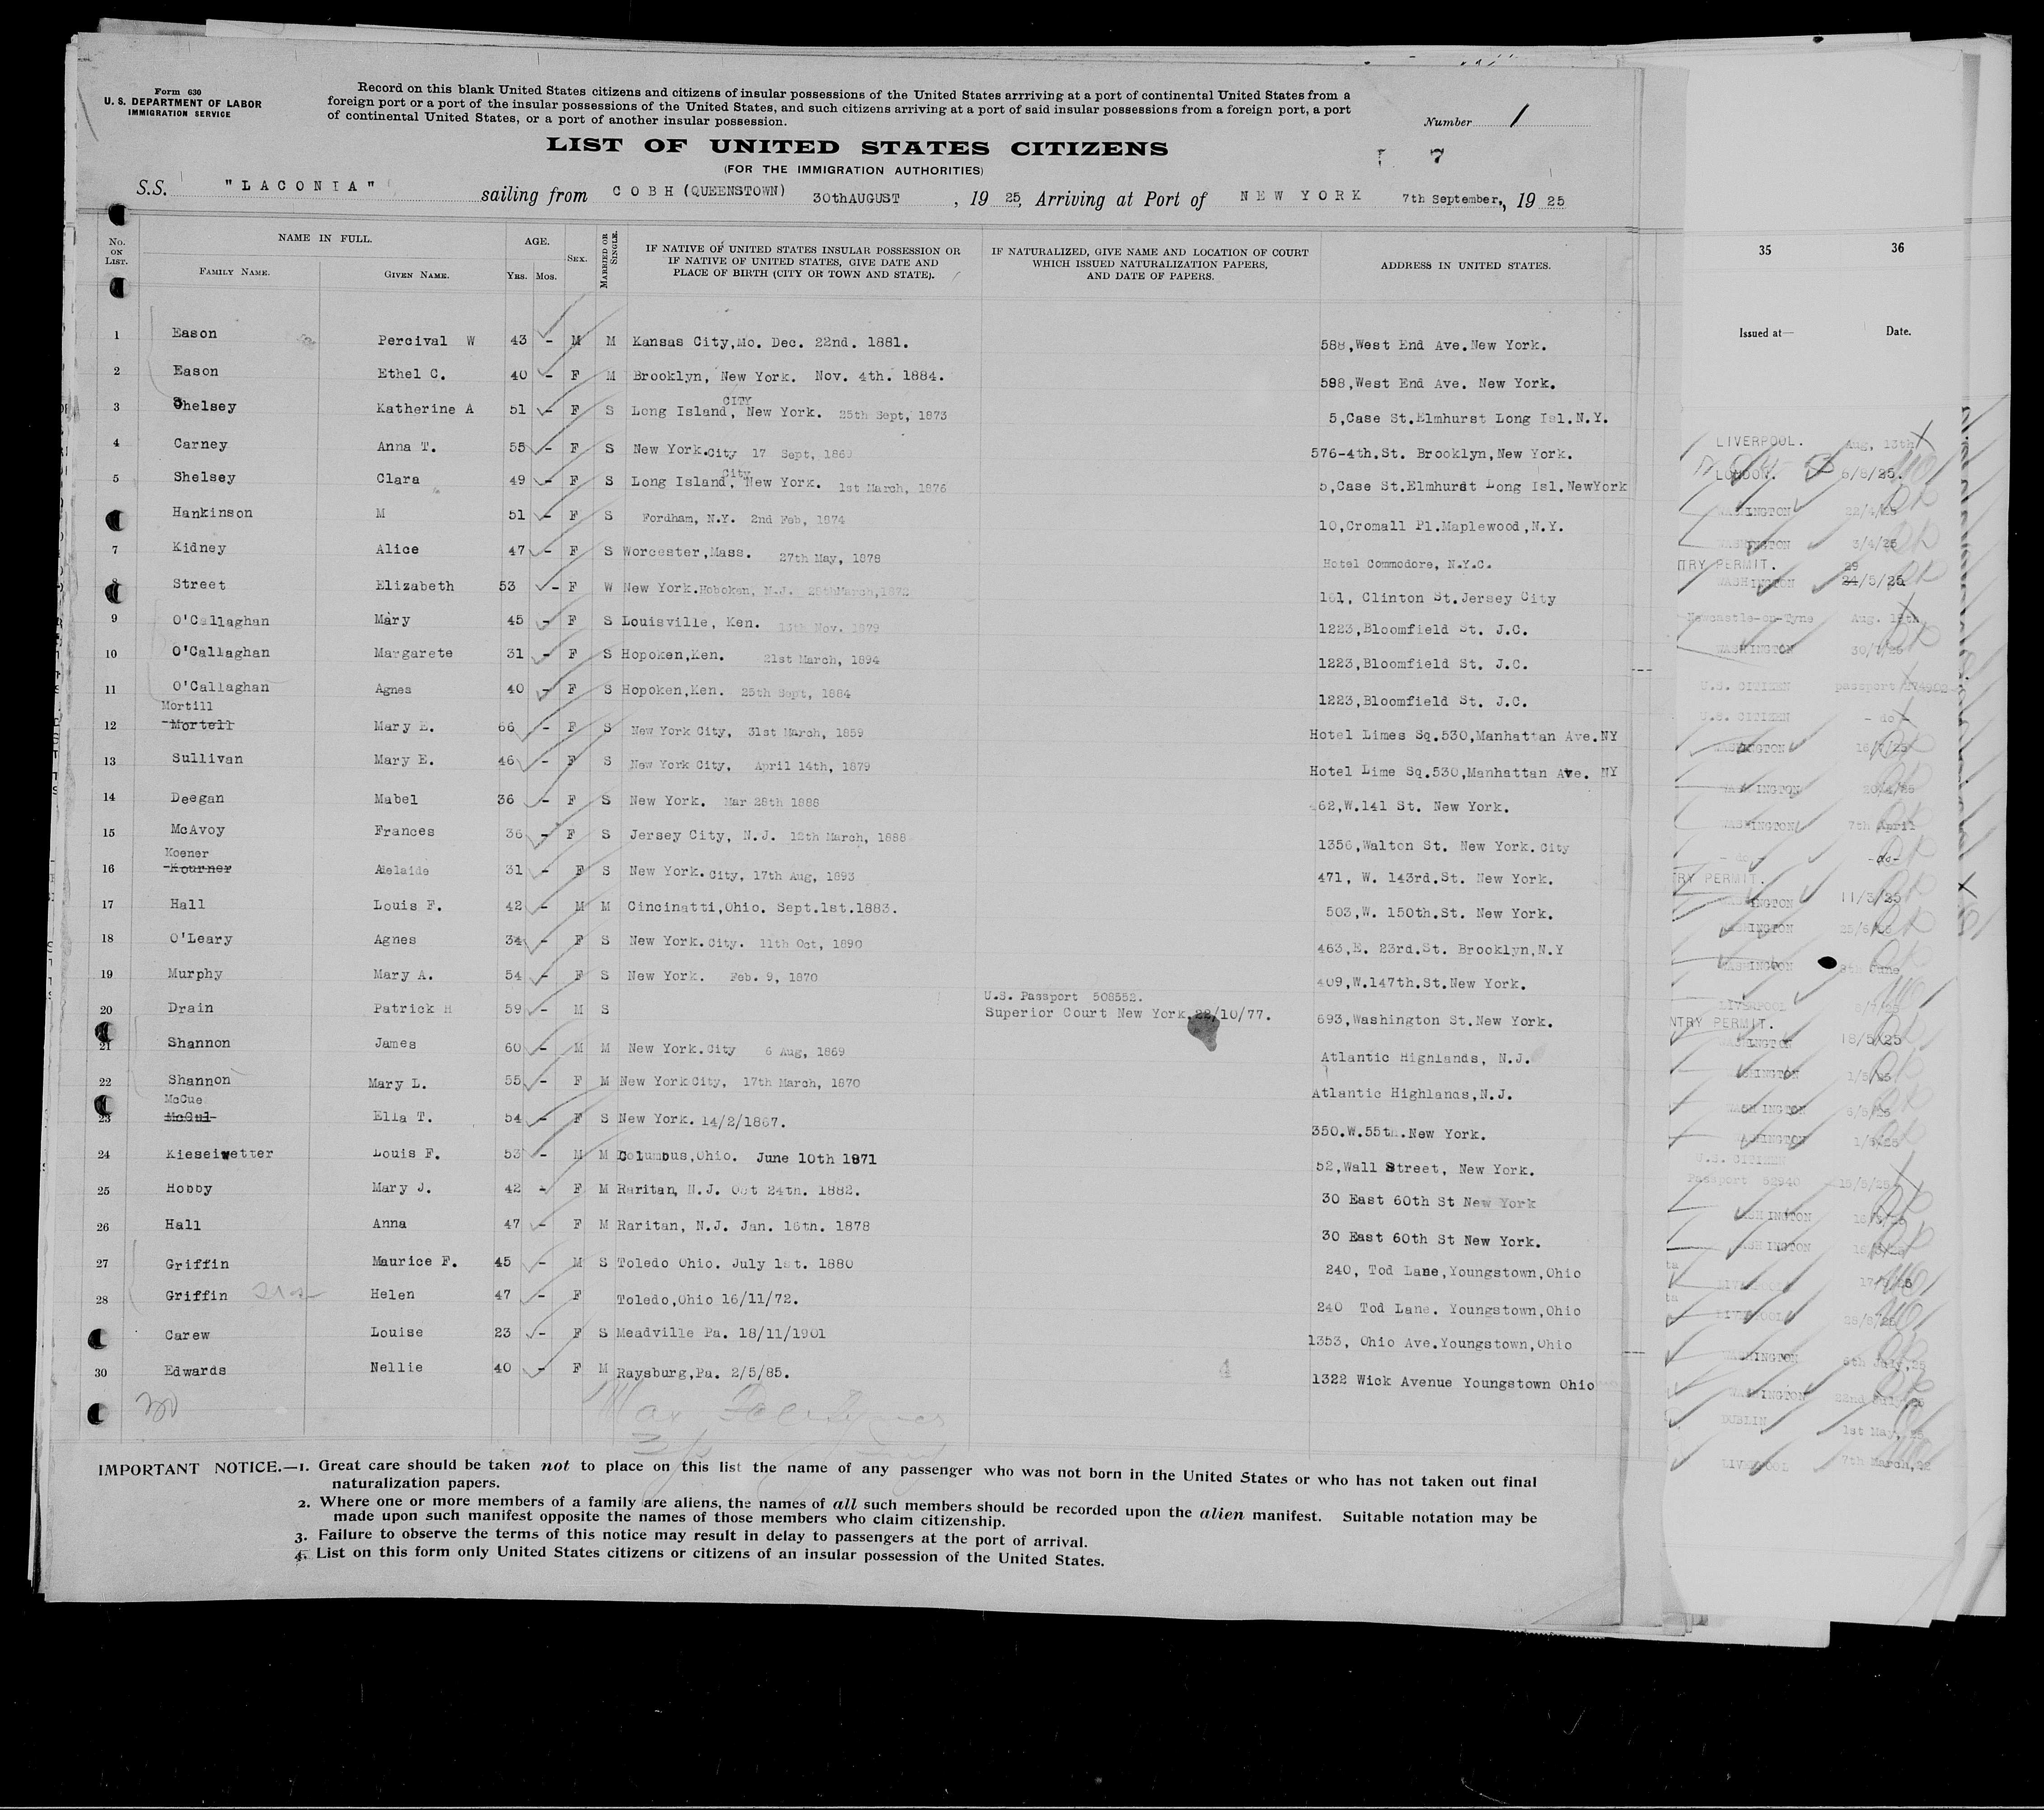 Form 630
U. S. DEPARTMENT OF LABOR
IMMIGRATION SERVICE
Record on this blank United States citizens and citizens of insular possessions of the United States arrriving at a port of continental United States from a
foreign port or a port of the insular possessions of the United States, and such citizens arriving at a port of said insular possessions from a foreign port, a port
of continental United States, or a port of another insular possession.
Number 1
LIST OF UNITED STATES CITIZENS
7
(FOR THE IMMIGRATION AUTHORITIES)
S.S. "LACONIA" sailing from COBH (QUEENSTOWN) 30thAUGUST, 1925, Arriving at Port of NEW YORK 7th September,, 1925
No. ON LIST.
NAME IN FULL.
FAMILY NAME. GIVEN NAME.
AGE.
YRS. MOS.
SEX.
MARRIED OR SINGLE.
IF NATIVE OF UNITED STATES INSULAR POSSESSION OR
IF NATIVE OF UNITED STATES, GIVE DATE AND
PLACE OF BIRTH (CITY OR TOWN AND STATE).
IF NATURALIZED, GIVE NAME AND LOCATION OF COURT
WHICH ISSUED NATURALIZATION PAPERS,
AND DATE OF PAPERS.
ADDRESS IN UNITED STATES.
1 Eason Percival W 43 - M M Kansas City,Mo. Dec. 22nd. 1881. 588,West End Ave.New York.
2 Eason Ethel C. 40 - F M Brooklyn, New York. Nov. 4th. 1884. 598,West End Ave. New York.
CITY
3 Shelsey Katherine A 51 - F S Long Island, New York. 25th Sept, 1873 5,Case St.Elmhurst Long Isl.N.Y.
4 Carney Anna T. 55 - F S New York.City 17 Sept, 1869 576-4th.St. Brooklyn,New York.
City
5 Shelsey Clara 49 - F S Long Island, New York. 1st March, 1876 5,Case St.Elmhurst Long Isl.NewYork
Hankinson M 51 - F S Fordham, N.Y. 2nd Feb, 1874 10,Cromall Pl.Maplewood,N.Y.
7 Kidney Alice 47 - F S Worcester,Mass. 27th May, 1878 Hotel Commodore, N.Y.C.
8 Street Elizabeth 53 - F W New York.Hoboken, N.J. 161, Clinton St.Jersey City
9 O'Callaghan Mary 45 - F S Louisville, Ken. 13th Nov. 1879 1223,Bloomfield St. J.C.
10 O'Callaghan Margarete 31 - F S Hopoken,Ken. 21st March, 1894 1223,Bloomfield St. J.C.
11 O'Callaghan Agnes 40 - F S Hopoken,Ken. 25th Sept, 1884 1223,Bloomfield St. J.C.
Mortill
12 Mortell Mary E. 66 - F S New York City, 31st March, 1859 Hotel Limes Sq.530,Manhattan Ave.NY
13 Sullivan Mary E. 46 - F S New York City, April 14th, 1879 Hotel Lime Sq.530,Manhattan Ave. NY
14 Deegan Mabel 36 - F S New York. Mar 28th 1888 462,W.141 St. New York.
15 McAvoy Frances 36 - F S Jersey City, N.J. 12th March, 1888 1356,Walton St. New York. City
Koener
16 Kourner Adelaide 31 - F S New York. City, 17th Aug, 1893 471, W. 143rd.St. New York.
17 Hall Louis F. 42 - M M Cincinatti,Ohio. Sept.1st.1883. 503,W. 150th.St. New York.
18 O'Leary Agnes 34 - F S New York.City. 11th Oct, 1890 463,E. 23rd.St. Brooklyn,N.Y
19 Murphy Mary A. 54 - F S New York. Feb. 9, 1870 409,W.147th.St.New York.
U.S. Passport 508552.
20 Drain Patrick H 59 - M S Superior Court New York.22/10/77. 693,Washington St.New York.
21 Shannon James 60 - M M New York.City 6 Aug, 1869 Atlantic Highlands, N.J.
22 Shannon Mary L. 55 - F M New York City, 17th March, 1870 Atlantic Highlands,N.J.
McCue
23 McCul Ella T. 54 - F S New York. 14/2/1867. 350.W.55th.New York.
24 Kieseiwetter Louis F. 53 - M M Columbus,Ohio. June 10th 1871 52,Wall Street, New York.
25 Hobby Mary J. 42 - F M Raritan, N.J. Oct 24th. 1882. 30 East 60th St New York
26 Hall Anna 47 - F M Raritan, N.J. Jan. 16th. 1878 30 East 60th St New York.
27 Griffin Maurice F. 45 - M S Toledo Ohio. July 1st. 1880 240, Tod Lane,Youngstown,Ohio
28 Griffin Helen 47 - F Toledo,Ohio 16/11/72. 240 Tod Lane. Youngstown,Ohio
29 Carew Louise 23 - F S Meadville Pa. 18/11/1901 1353, Ohio Ave.Youngstown,Ohio
30 Edwards Nellie 40 - F M Raysburg,Pa. 2/5/85. 4 1322 Wick Avenue Youngstown Ohio
30
IMPORTANT NOTICE.—1. Great care should be taken not to place on this list the name of any passenger who was not born in the United States or who has not taken out final
naturalization papers.
2. Where one or more members of a family are aliens, the names of all such members should be recorded upon the alien manifest. Suitable notation may be
made upon such manifest opposite the names of those members who claim citizenship.
3. Failure to observe the terms of this notice may result in delay to passengers at the port of arrival.
4. List on this form only United States citizens or citizens of an insular possession of the United States.
35 36
Issued at— Date.
LIVERPOOL. Aug, 13th
LONDON. 6/8/25.
WASHINGTON 22/4/25
WASHINGTON 3/4/25
TRY PERMIT. 29
WASHINGTON 24/5/25
Newcastle-on-Tyne Aug.
WASHINGTON 30/7/25
U.S. CITIZEN passport
U.S. CITIZEN - do -
WASHINGTON
WASHINGTON
WASHINGTON 7th April
- do - -do-
TRY PERMIT.
WASHINGTON 11/3/25
WASHINGTON
WASHINGTON June
LIVERPOOL
NTRY PERMIT.
WASHINGTON 18/5/25
WASHINGTON
WASHINGTON
WASHINGTON
U.S. CITIZEN
Passport 52940
WASHINGTON
WASHINGTON
LIVERPOOL
LIVERPOOL
WASHINGTON 6th July,25
WASHINGTON 22nd July
DUBLIN 1st May,
LIVERPOOL 7th March,